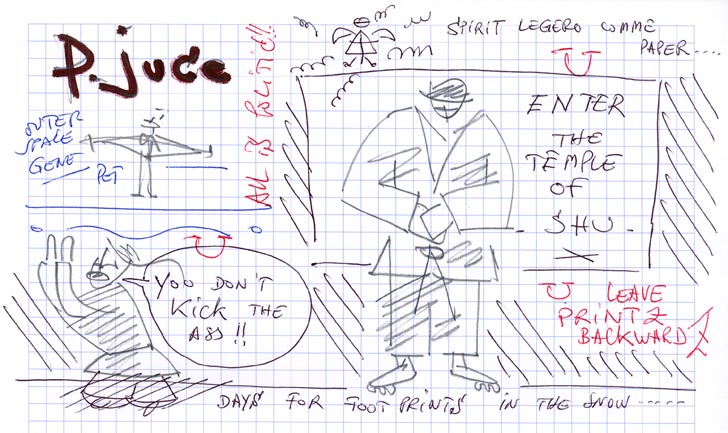 P. jude
SPIRIT LEGERO COMME
PAPER.....
ALL IS POLITIC!!
OUTER
SPACE
GENE
PET
ENTER
THE
TEMPLE
OF
- SHU -
YOU DON'T
Kick THE
ASS!!
LEAVE
PRINTZ
BACKWARDZ
DAYS FOR FOOTPRINTS IN THE SNOW -----